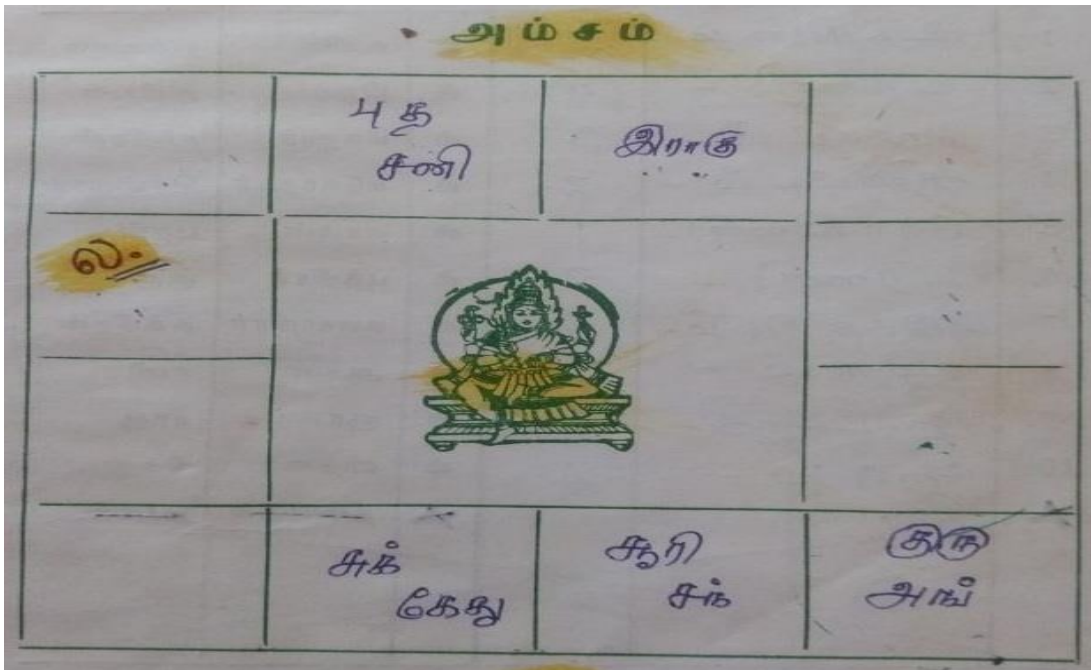 அம்சம்
புத
சனி
இராகு
ல.
சுக்
கேது
சூரி
சந்
குரு
அங்